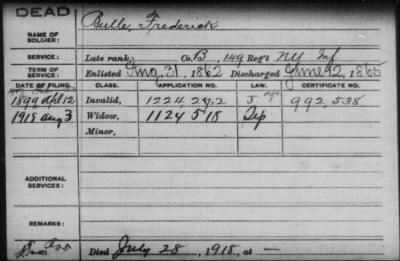 DEAD
Bulle, Frederick
NAME OF SOLDIER:
SERVICE: Late rank, Co. B, 149 Reg't NY Inf
TERM OF SERVICE: Enlisted Aug. 31, 1862 Discharged June 12, 1865
DATE OF FILING. CLASS. APPLICATION NO. LAW. CERTIFICATE NO.
1899 Apl 12 Invalid, 1224,242 992,538
1918 Aug 3 Widow, 1124518
Minor,
ADDITIONAL SERVICES:
REMARKS:
Died July 28, 1918, at —